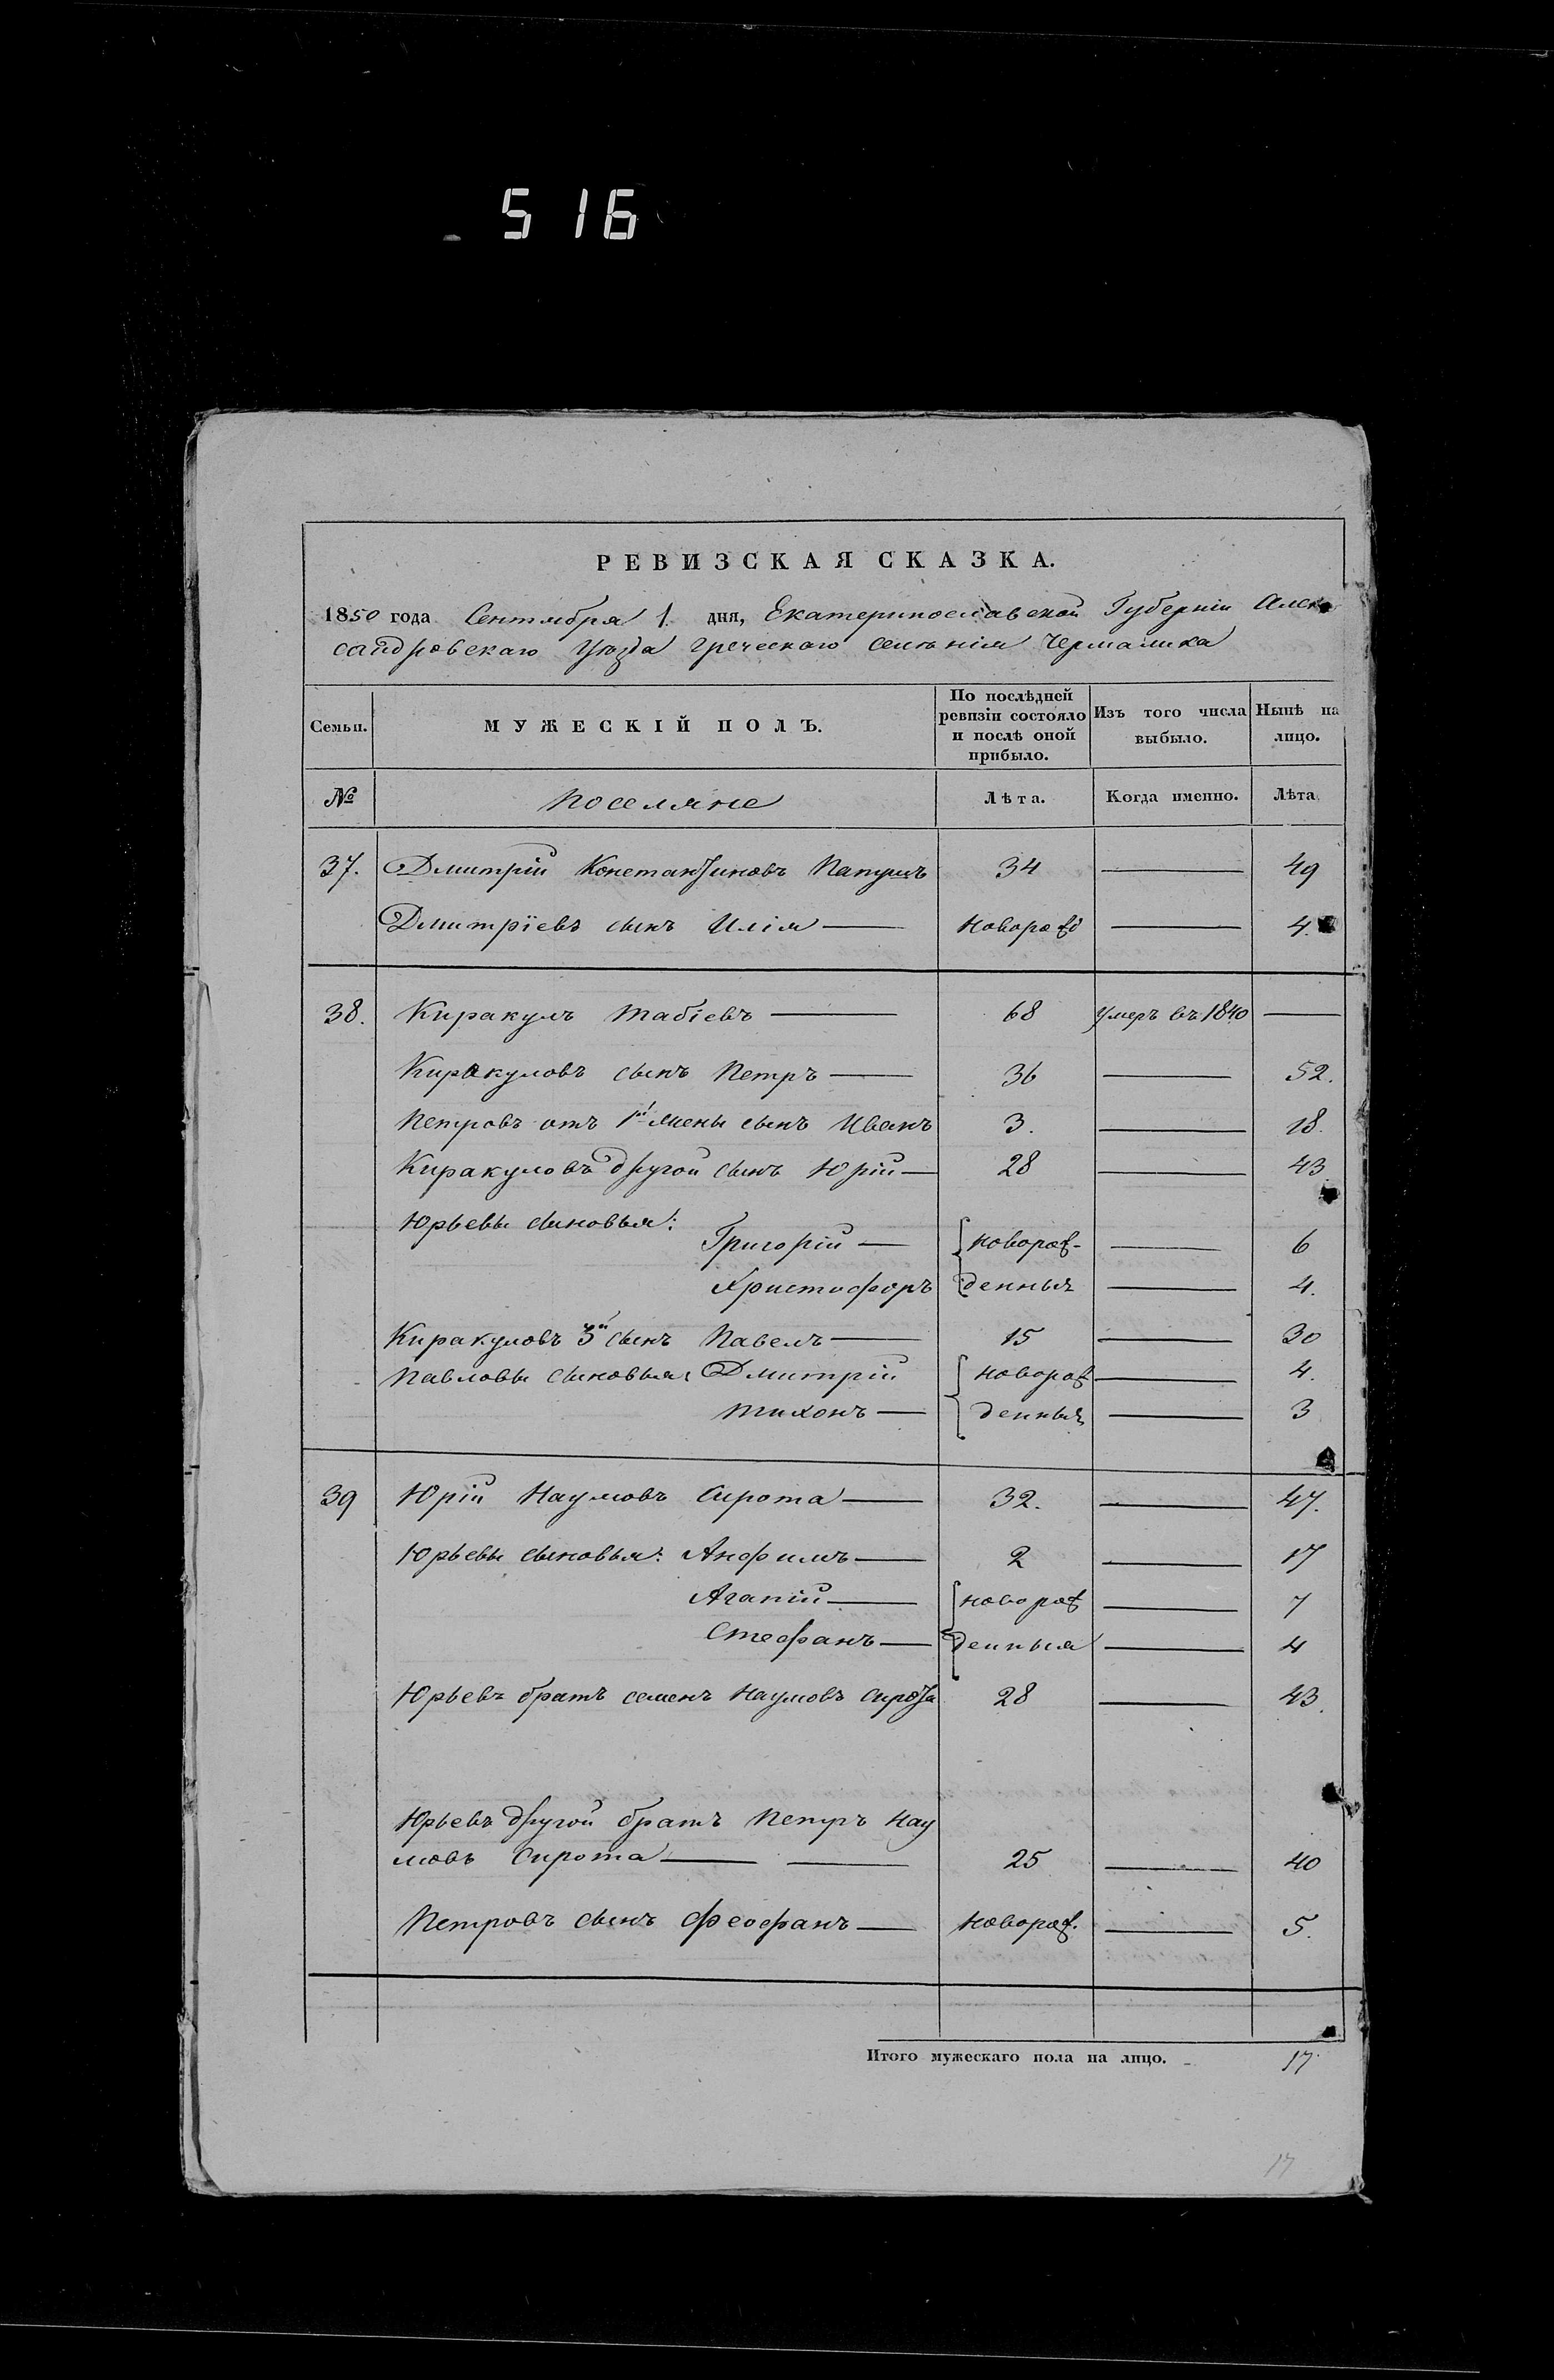 516
РЕВИЗСКАЯ СКАЗКА.
1850 года Сентября 1. дня, Екатеринославской Губерніи Алек
сандровскаго Уѣзда греческаго селенія Чермалика
Семьи. МУЖЕСКІЙ ПОЛЪ. По послѣдней ревизіи состояло и послѣ оной прибыло. Изъ того числа выбыло. Нынѣ на лицо.
№ Поселяне Лѣта. Когда именно. Лѣта
37. Дмитрій Константиновъ Папушъ 34 — 49
Дмитріевъ сынъ Илія — новорожд — 4.
38. Киракулъ Табіевъ — 68 умеръ въ 1840 —
Киракуловъ сынъ Петръ — 36 — 52.
Петровъ отъ 1й жены сынъ Иванъ 3. — 18.
Киракуловъ другой сынъ Юрій — 28 — 43
Юрьевы сыновья:
Григорій — новорож- — 6
Христофоръ денныя — 4.
Киракуловъ 3й сынъ Павелъ — 15 — 30
Павловы сыновья: Дмитрій новорож — 4.
Тихонъ — денныя — 3
39 Юрій Наумовъ Сирота — 32. — 47.
Юрьевы сыновья: Анфимъ — 2 — 17
Агапій — новорож — 7
Стефанъ — денныя — 4
Юрьевъ братъ семенъ Наумовъ Сирота 28 — 43.
Юрьевъ другой братъ Петръ Нау
мовъ Сирота — — 25 — 40
Петровъ сынъ Феофанъ — новорож. — 5.
Итого мужескаго пола на лицо. 17
17